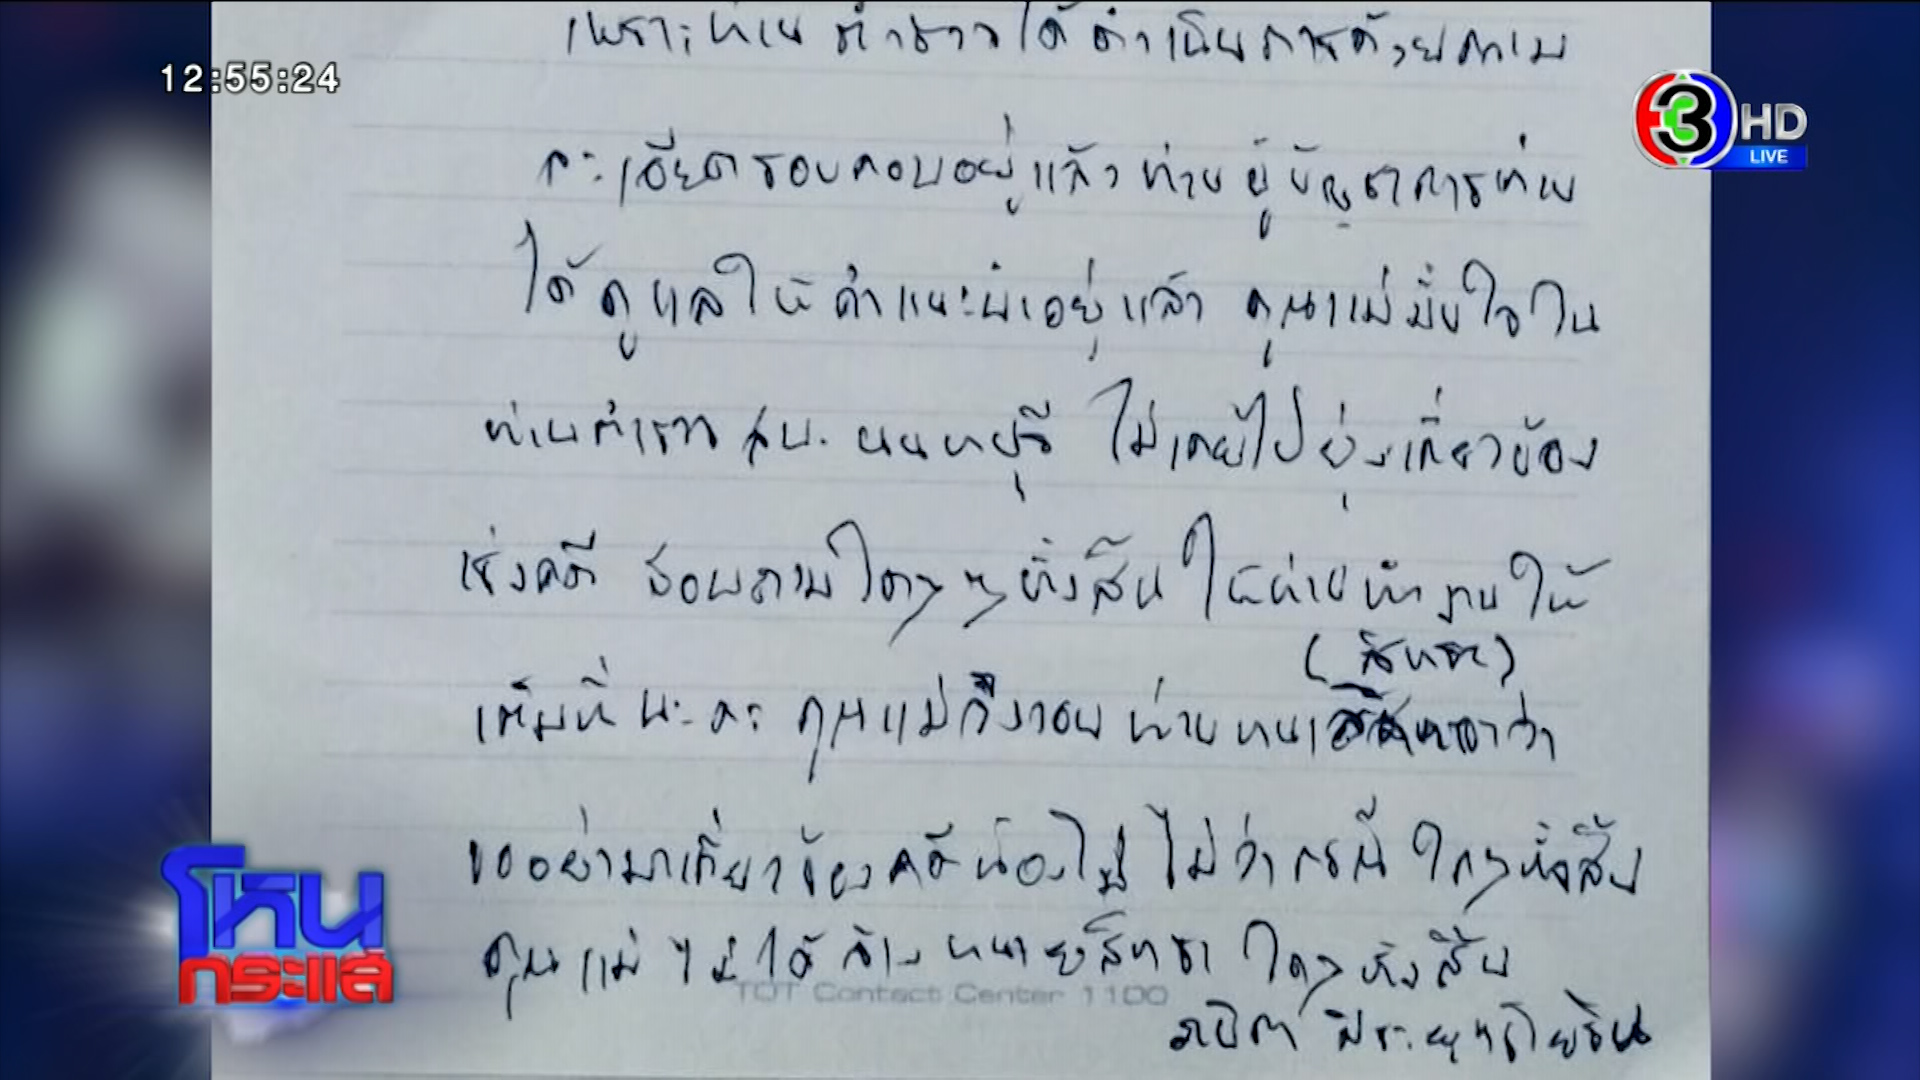 เพราะท่านตำรวจได้ดำเนินการด้วยความ
12:55:24
3 HD
LIVE
ละเอียดรอบคอบอยู่แล้ว ท่านผู้บัญชาการท่าน
ได้ดูแลให้คำแนะนำอยู่แล้ว คุณแม่มั่นใจใน
ท่านตำรวจ สภ. นนทบุรี ไม่เคยไปยุ่งเกี่ยวข้อง
เร่งคดี สอบถามใดๆ ทั้งสิ้น ให้ท่านทำงานให้
(สิทธะ)
เต็มที่นะคะ คุณแม่จึงวอนท่านทน ว่า
ขออย่ามาเกี่ยวข้องคดีน้อง ไม่ว่ากรณีใดๆทั้งสิ้น
คุณแม่ไม่ได้จ้างทนายสิทธา ใดๆทั้งสิ้น
โหนกระแส
TOT Contact Center 1100
ภนิดา